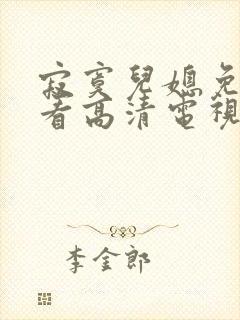 寂寞兒媳免
看高清電視
李金郎